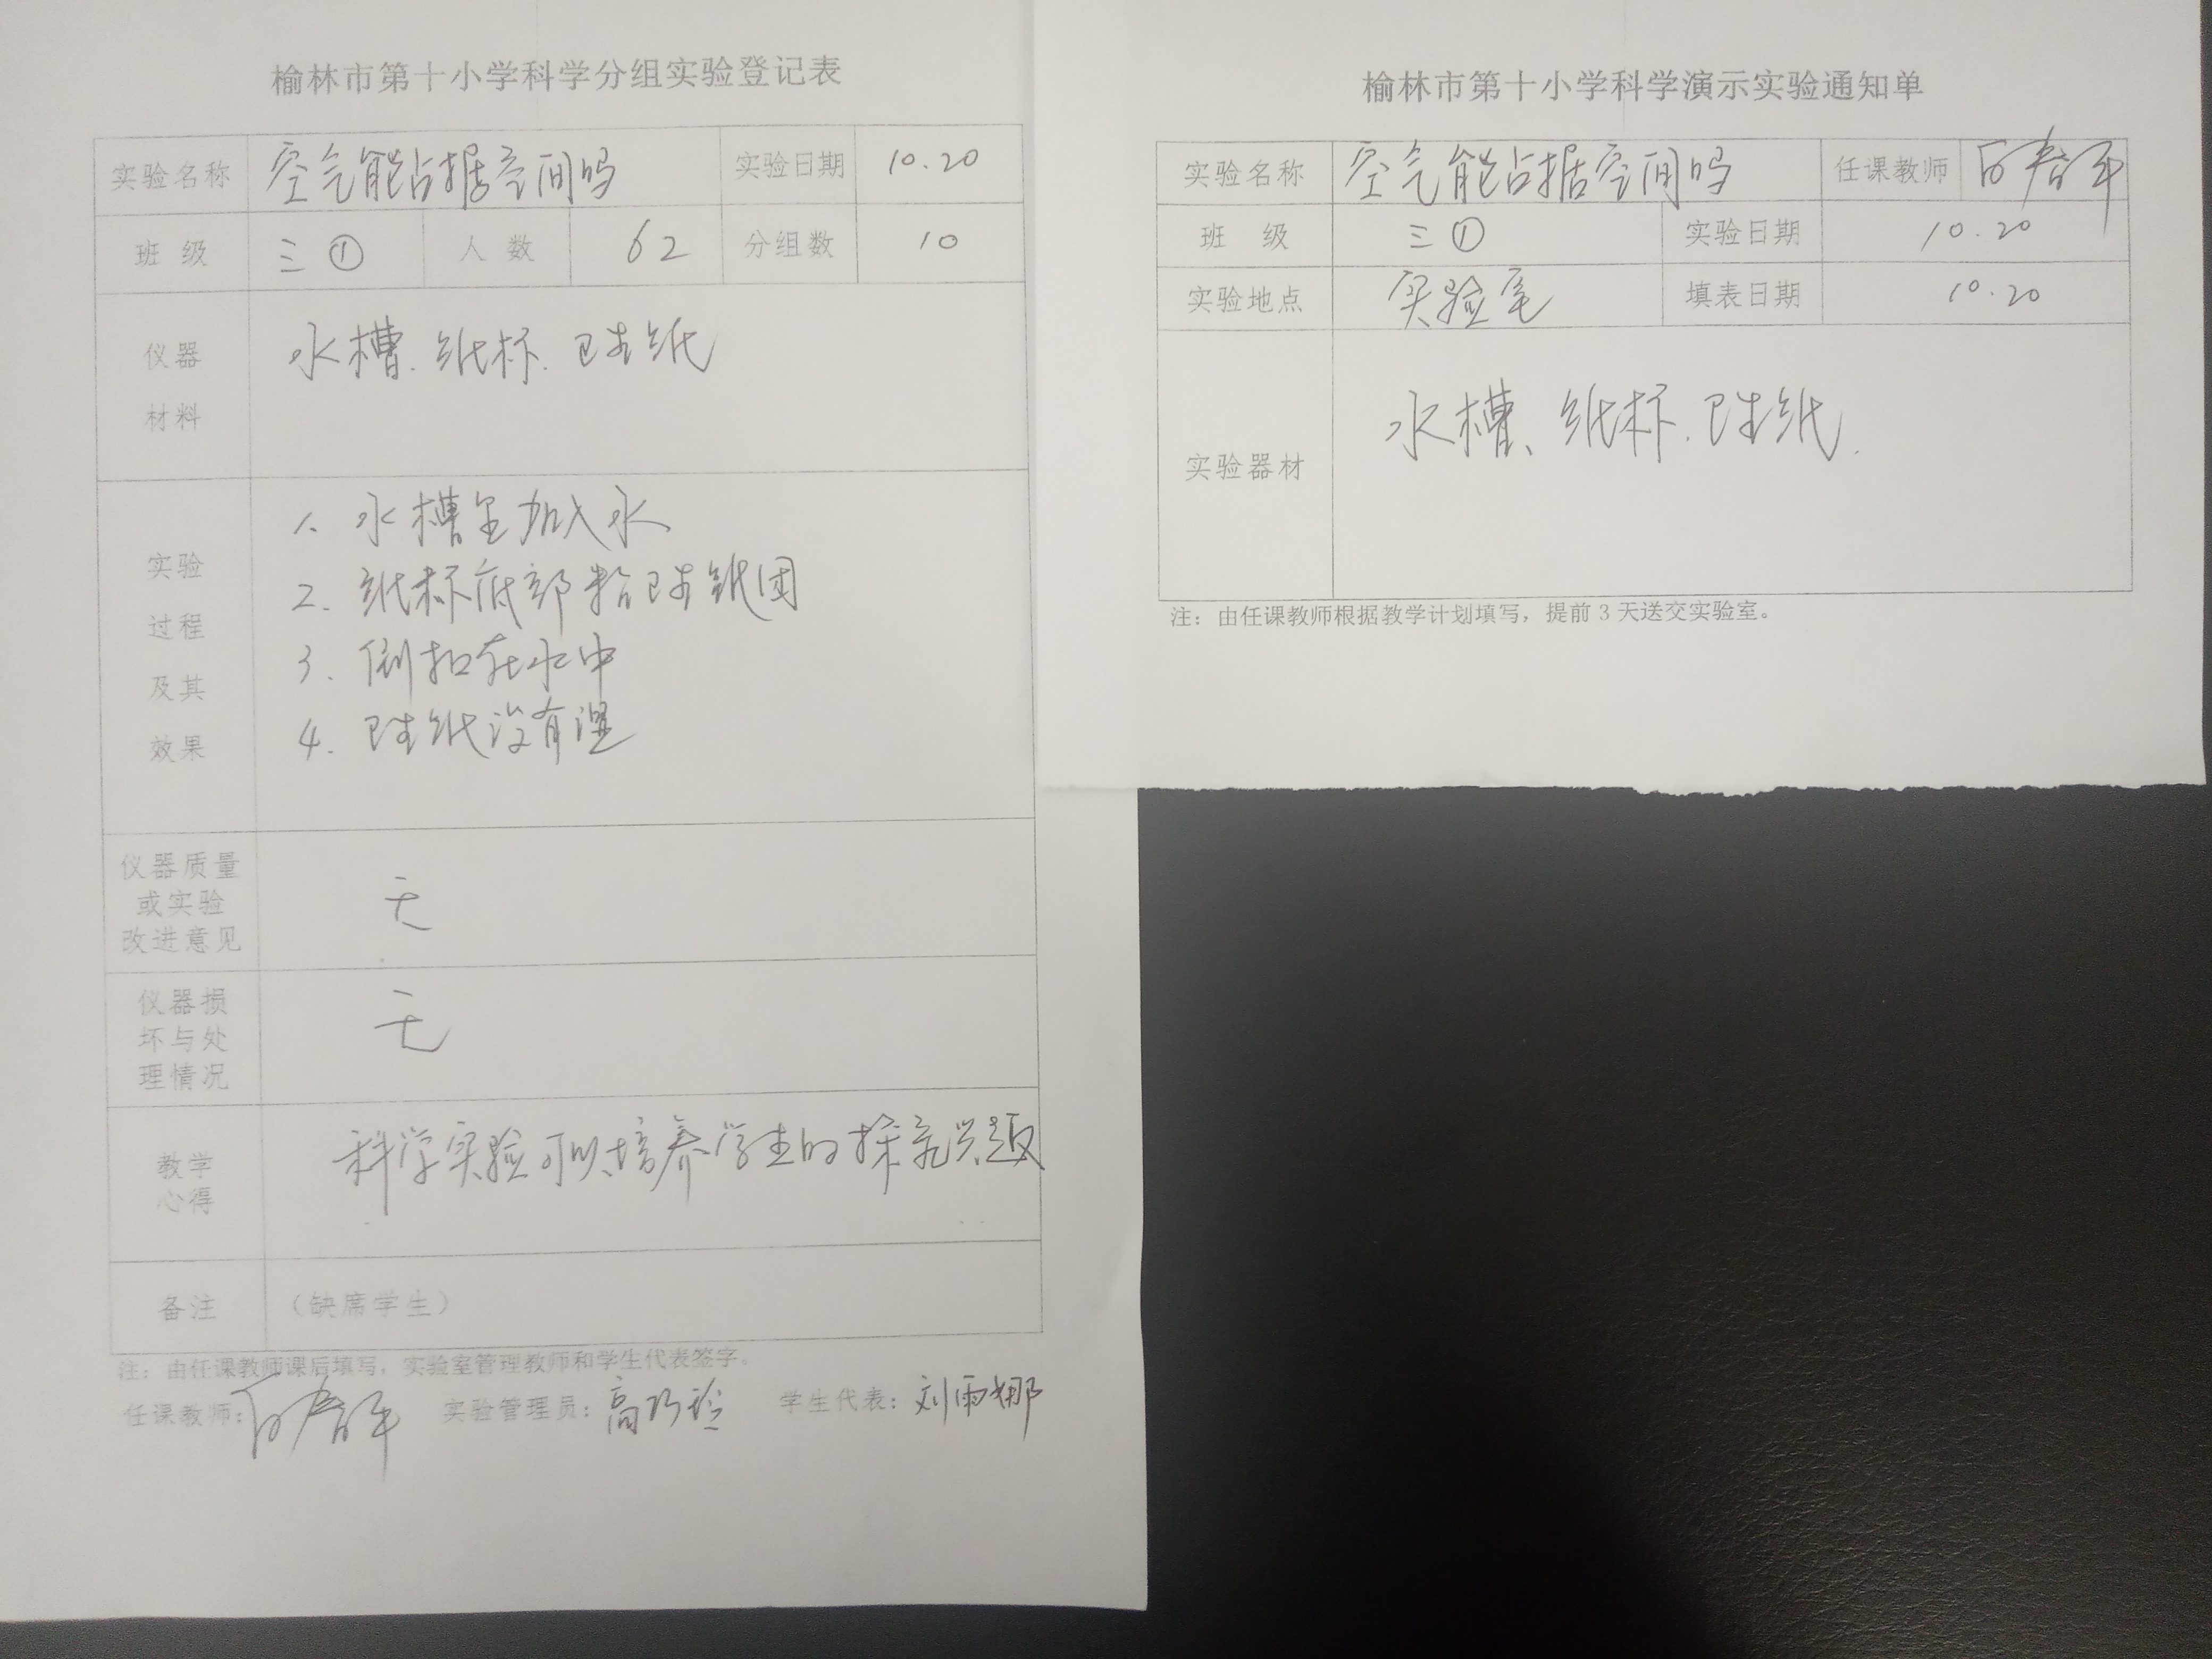 榆林市第十小学科学分组实验登记表
实验名称 空气能占据空间吗 实验日期 10.20
班 级 三① 人 数 62 分组数 10
仪器
材料
水槽、纸杯、卫生纸
实验
过程
及其
效果
1. 水槽里加入水
2. 纸杯底部粘卫生纸团
3. 倒扣在水中
4. 卫生纸没有湿
仪器质量
或实验
改进意见
无
仪器损
坏与处
理情况
无
教学
心得
科学实验可以培养学生的探究兴趣
备注 （缺席学生）
注：由任课教师课后填写，实验室管理教师和学生代表签字。
任课教师： 实验管理员：高巧玲 学生代表：刘雨娜
榆林市第十小学科学演示实验通知单
实验名称 空气能占据空间吗 任课教师
班 级 三① 实验日期 10.20
实验地点 实验室 填表日期 10.20
实验器材 水槽、纸杯、卫生纸.
注：由任课教师根据教学计划填写，提前 3 天送交实验室。